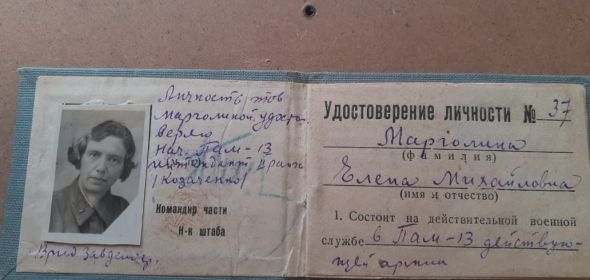 Личность тов
Марголиной удосто-
веряю
Нач. Пам-13
интендант 2 ранга
/Козаченко/
Командир части
Н-к штаба
Удостоверение личности № 37
Марголина
(фамилия)
Елена Михайловна
(имя и отчество)
1. Состоит на действительной военной
службе в Пам-13 действую-
щей армии